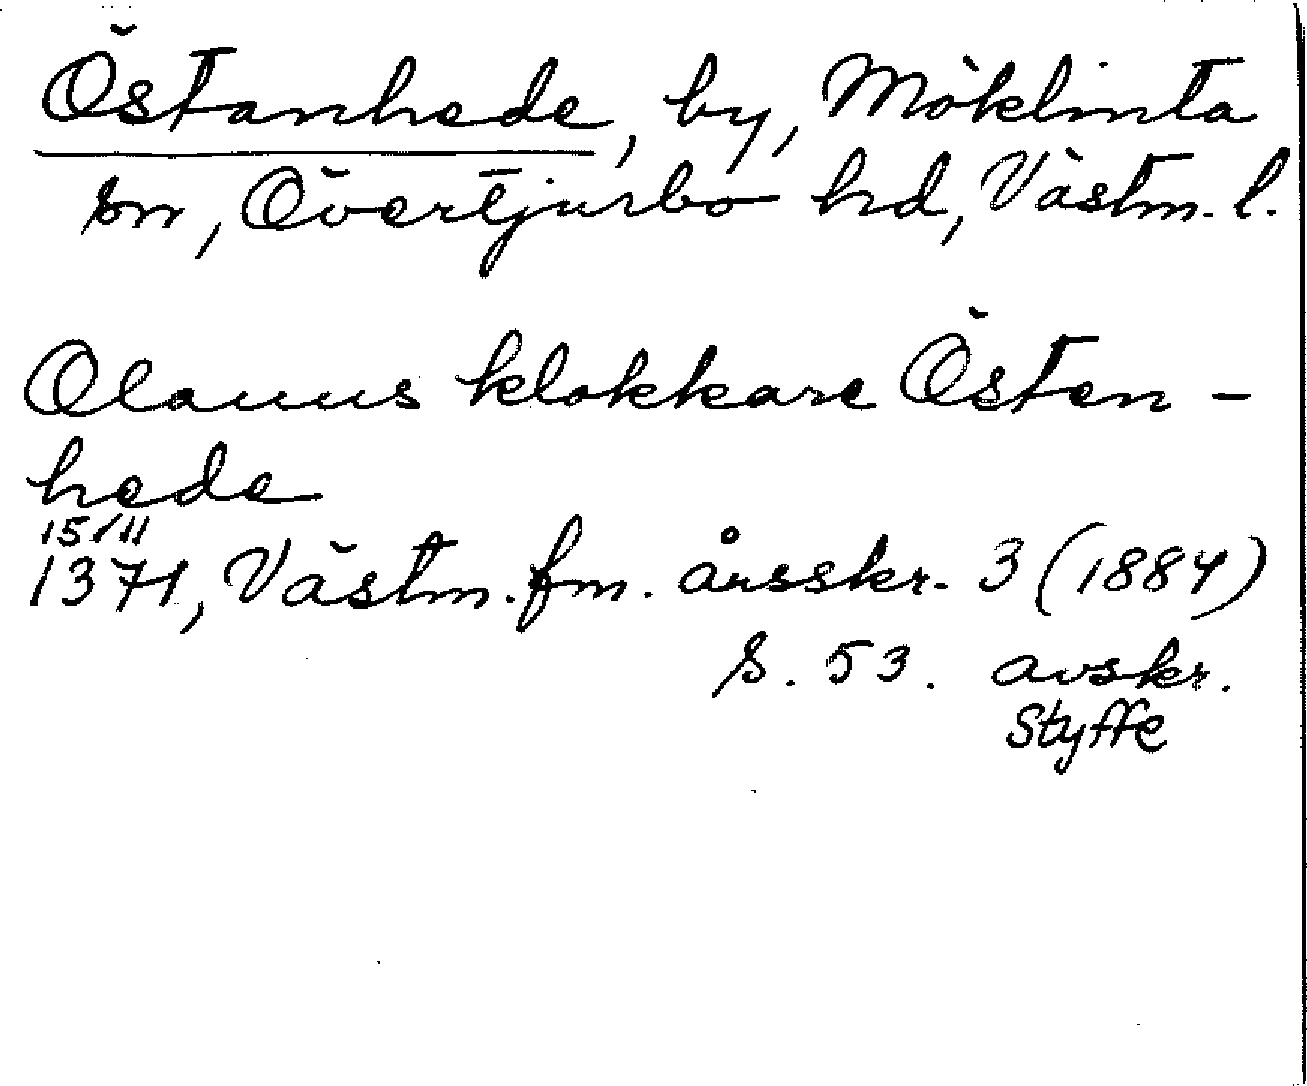 Östanhede, by, Möklinta
sn, Övertjurbo hd, Västm. l.
Olauus klokkare Östen-
hede
15/11
1371, Västm. fm. årsskr. 3 (1884)
s. 53. avskr.
Styffe